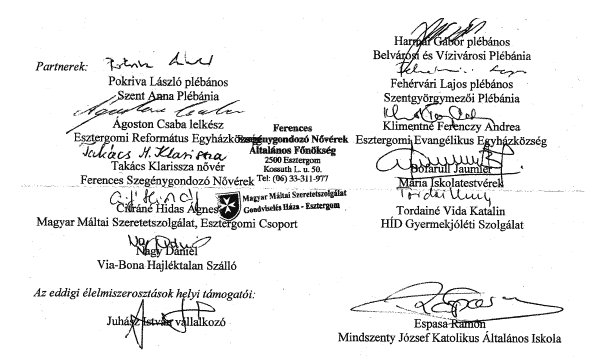 Partnerek:
Pokriva László plébános
Szent Anna Plébánia
Ágoston Csaba lelkész
Esztergomi Református Egyházközség
Takács H. Klarissza
Takács Klarissza nővér
Ferences Szegénygondozó Nővérek
Csitáriné Hidas Ágnes
Magyar Máltai Szeretetszolgálat, Esztergomi Csoport
Nagy Dániel
Via-Bona Hajléktalan Szálló
Ferences
Szegénygondozó Nővérek
Általános Főnökség
2500 Esztergom
Kossuth L. u. 50.
Tel: (06) 33-311-977
Magyar Máltai Szeretetszolgálat
Gondviselés Háza - Esztergom
Harmat Gábor plébános
Belvárosi és Vízivárosi Plébánia
Fehérvári Lajos plébános
Szentgyörgymezői Plébánia
Klimentné Ferenczy Andrea
Esztergomi Evangélikus Egyházközség
Bofarull Jaumier
Mária Iskolatestvérek
Tordainé Vida Katalin
HÍD Gyermekjóléti Szolgálat
Az eddigi élelmiszerosztások helyi támogatói:
Juhász István vállalkozó
Espasa Ramón
Mindszenty József Katolikus Általános Iskola